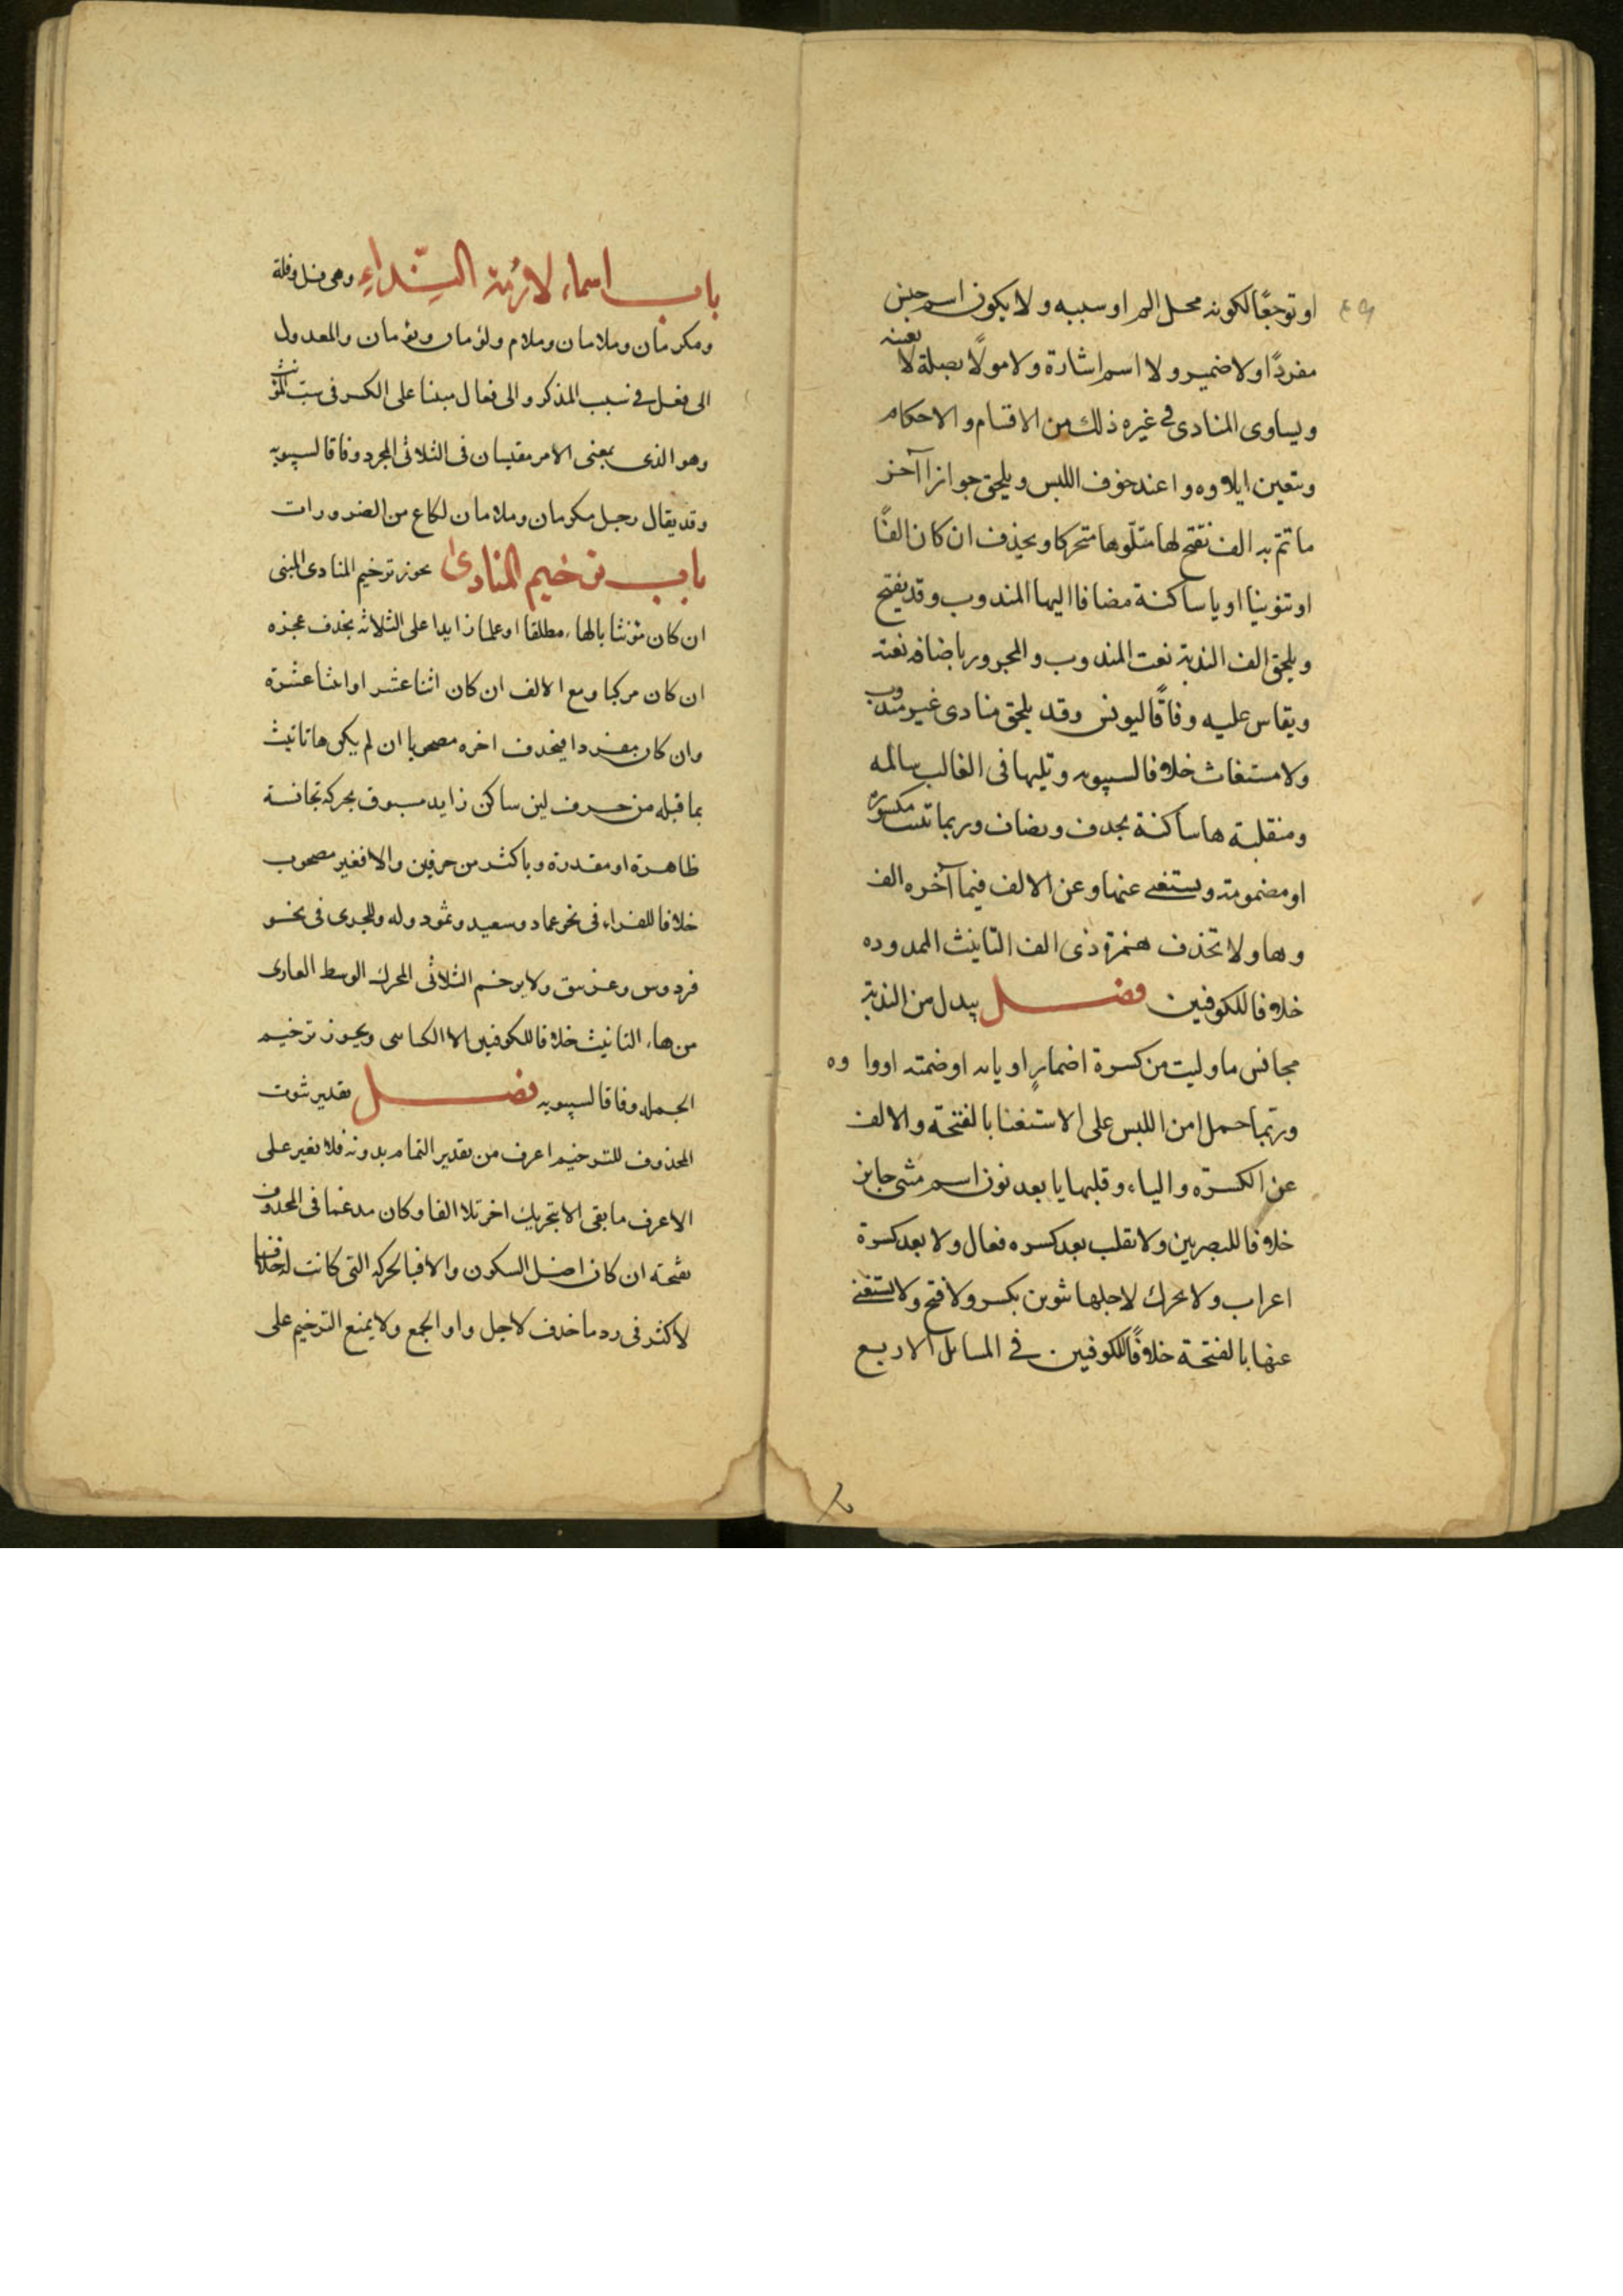 او توجعًا لكونه محل الم او سببه ولا يكون اسم جنس
مفردًا ولا ضمير ولا اسم اشارة ولا مولًا بصلة لا تعينه
ويساوى المنادى فى غيره ذلك من الاقسام والاحكام
ويتعين ايلاوه وا عند خوف اللبس ويلحق جوازا آخر
ما تمّ به الف تفتح لها متلّوها متحركا ويحذف ان كان الفًا
او تنوينا او يا ساكنة مضافا اليها المندوب وقد يفتح
ويلحق الف الندبة نعت المندوب والمجرور باضافه نعته
ويقاس عليه وفاقًا ليونس وقد يلحق منادى غير مندوب
ولا مستغاث خلافا لسيبويه وتليها فى الغالب سالمه
ومنقلبة ها ساكنة بحدف وصاف وربما تثبت مكسوره
او مضمومة ويستغنى عنها وعن الالف فيما آخره الف
وها ولا تحذف همزة ذى الف التانيث الممدوده
خلافا للكوفين فصل يبدل من الندبة
مجانس ما وليت من كسرة اضمارٍ او يائه او ضمته او واوه
وربّما حمل امن اللبس على الاستغنا بالفتحة والالف
عن الكسرة والياء وقلبها يا بعد نون اسم مثنى جايز
خلافا للبصريين ولا تقلب بعد كسره فعال ولا بعد كسرة
اعراب ولا يحرك لاجلها تنوين بكسر ولا فتح ولا يستغنى
عنها بالفتحة خلافًا للكوفين فى المسائل الاربع
باب اسماء لازمة النّداء وهى فل وفلة
ومكرمان وملامان وملام ولؤمان ونومان والمعدول
الى فعل فى سبب المذكر والى فعال مبنيا على الكسر فى سبب المؤنث
وهو الذى بمعنى الامر مقيسان فى الثلاثى المجرد وفاقا لسيبويه
وقد يقال رجل مكرمان وملامان لكاع من الضرورات
باب ترخيم المنادى يجوز ترخيم المنادى المبنى
ان كان مؤنثا بالهاء مطلقا او علما زايدا على الثلاثه بحذف عجزه
ان كان مركبا ومع الالف ان كان اثنا عشر او اثنا عشرة
وان كان مفردا فيحدف اخره مصحوبا ان لم يكن ها تانيث
بما قبله من حرف لين ساكن زايد مسبوق بحركة تجانسة
ظاهرة او مقدرة وباكثر من حرفين والا فغير مصحوب
خلافا للفراء فى نحو عماد وسعيد وثمود وله وللجرمى فى نحو
فردوس وغرنيق ولا يرخم الثلاثى المحرك الوسط العارى
من هاء التانيث خلافا للكوفين الا الكسائى ويجوز ترخيم
الجمله وفاقا لسيبويه فصل تقدير ثبوت
المحذوف للترخيم اعرف من تقدير التمام بدونه فلا يغير على
الاعرف ما بقى الا بتحريك اخر تلا الفا وكان مدغما فى المحذوف
بفتحه ان كان اصل السكون والا فبالحركه التى كانت له خلافا
لاكثر فى رد ما حذف لاجل واو الجمع ولا يمنع الترخيم على